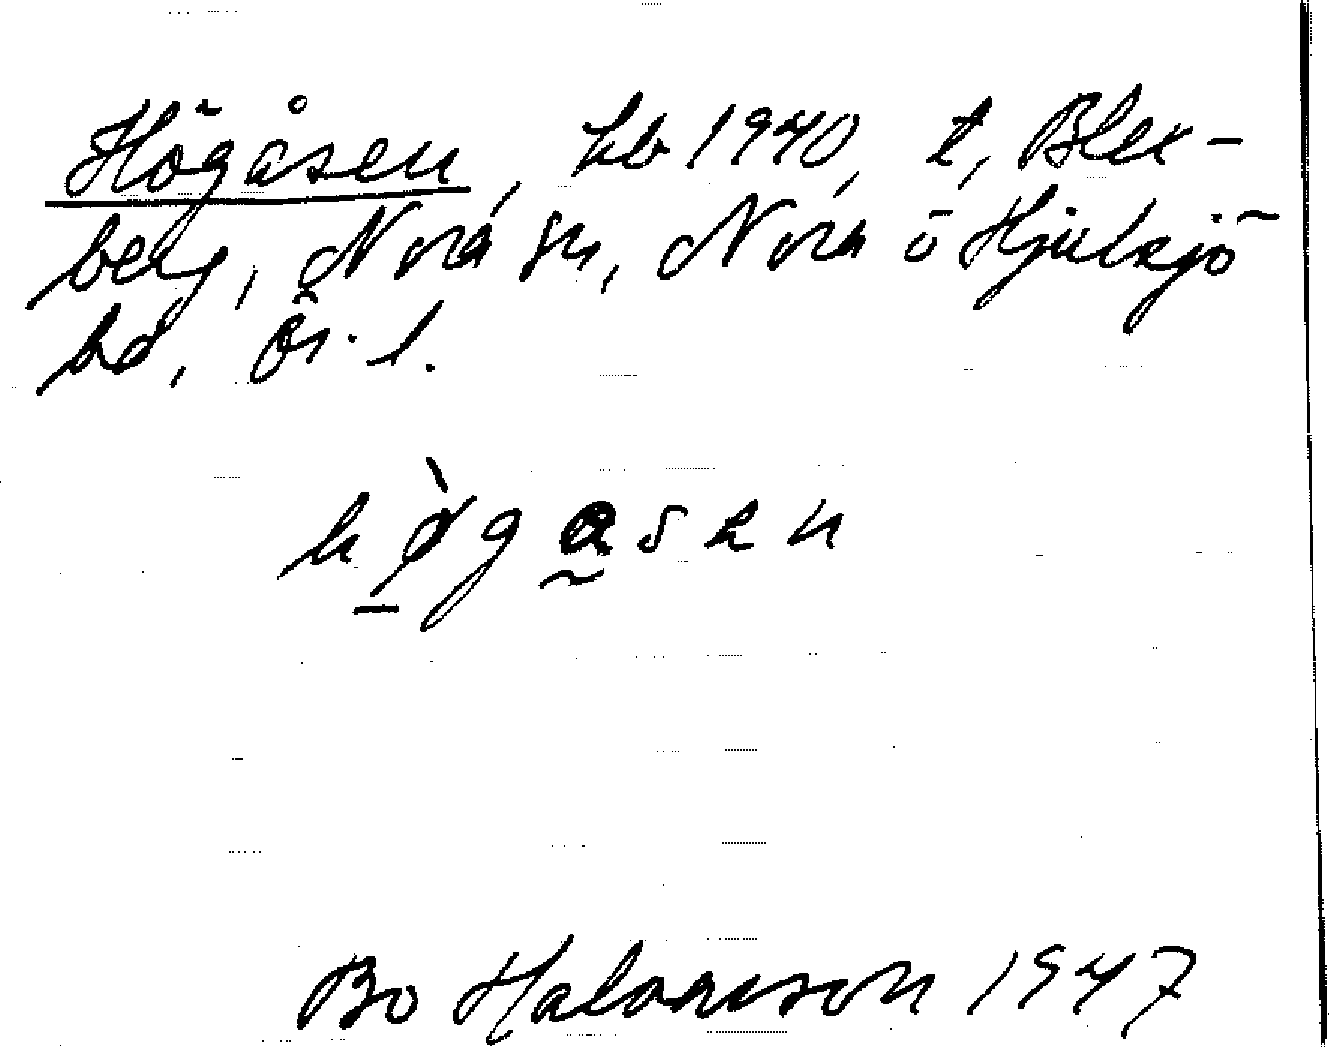 Högåsen, hb 1940, t, Blex-
berg, Nora sn, Nora ö Hjulsjö
bd, Ör. l.
hø̀gasen
Bo Halvarsson 1947